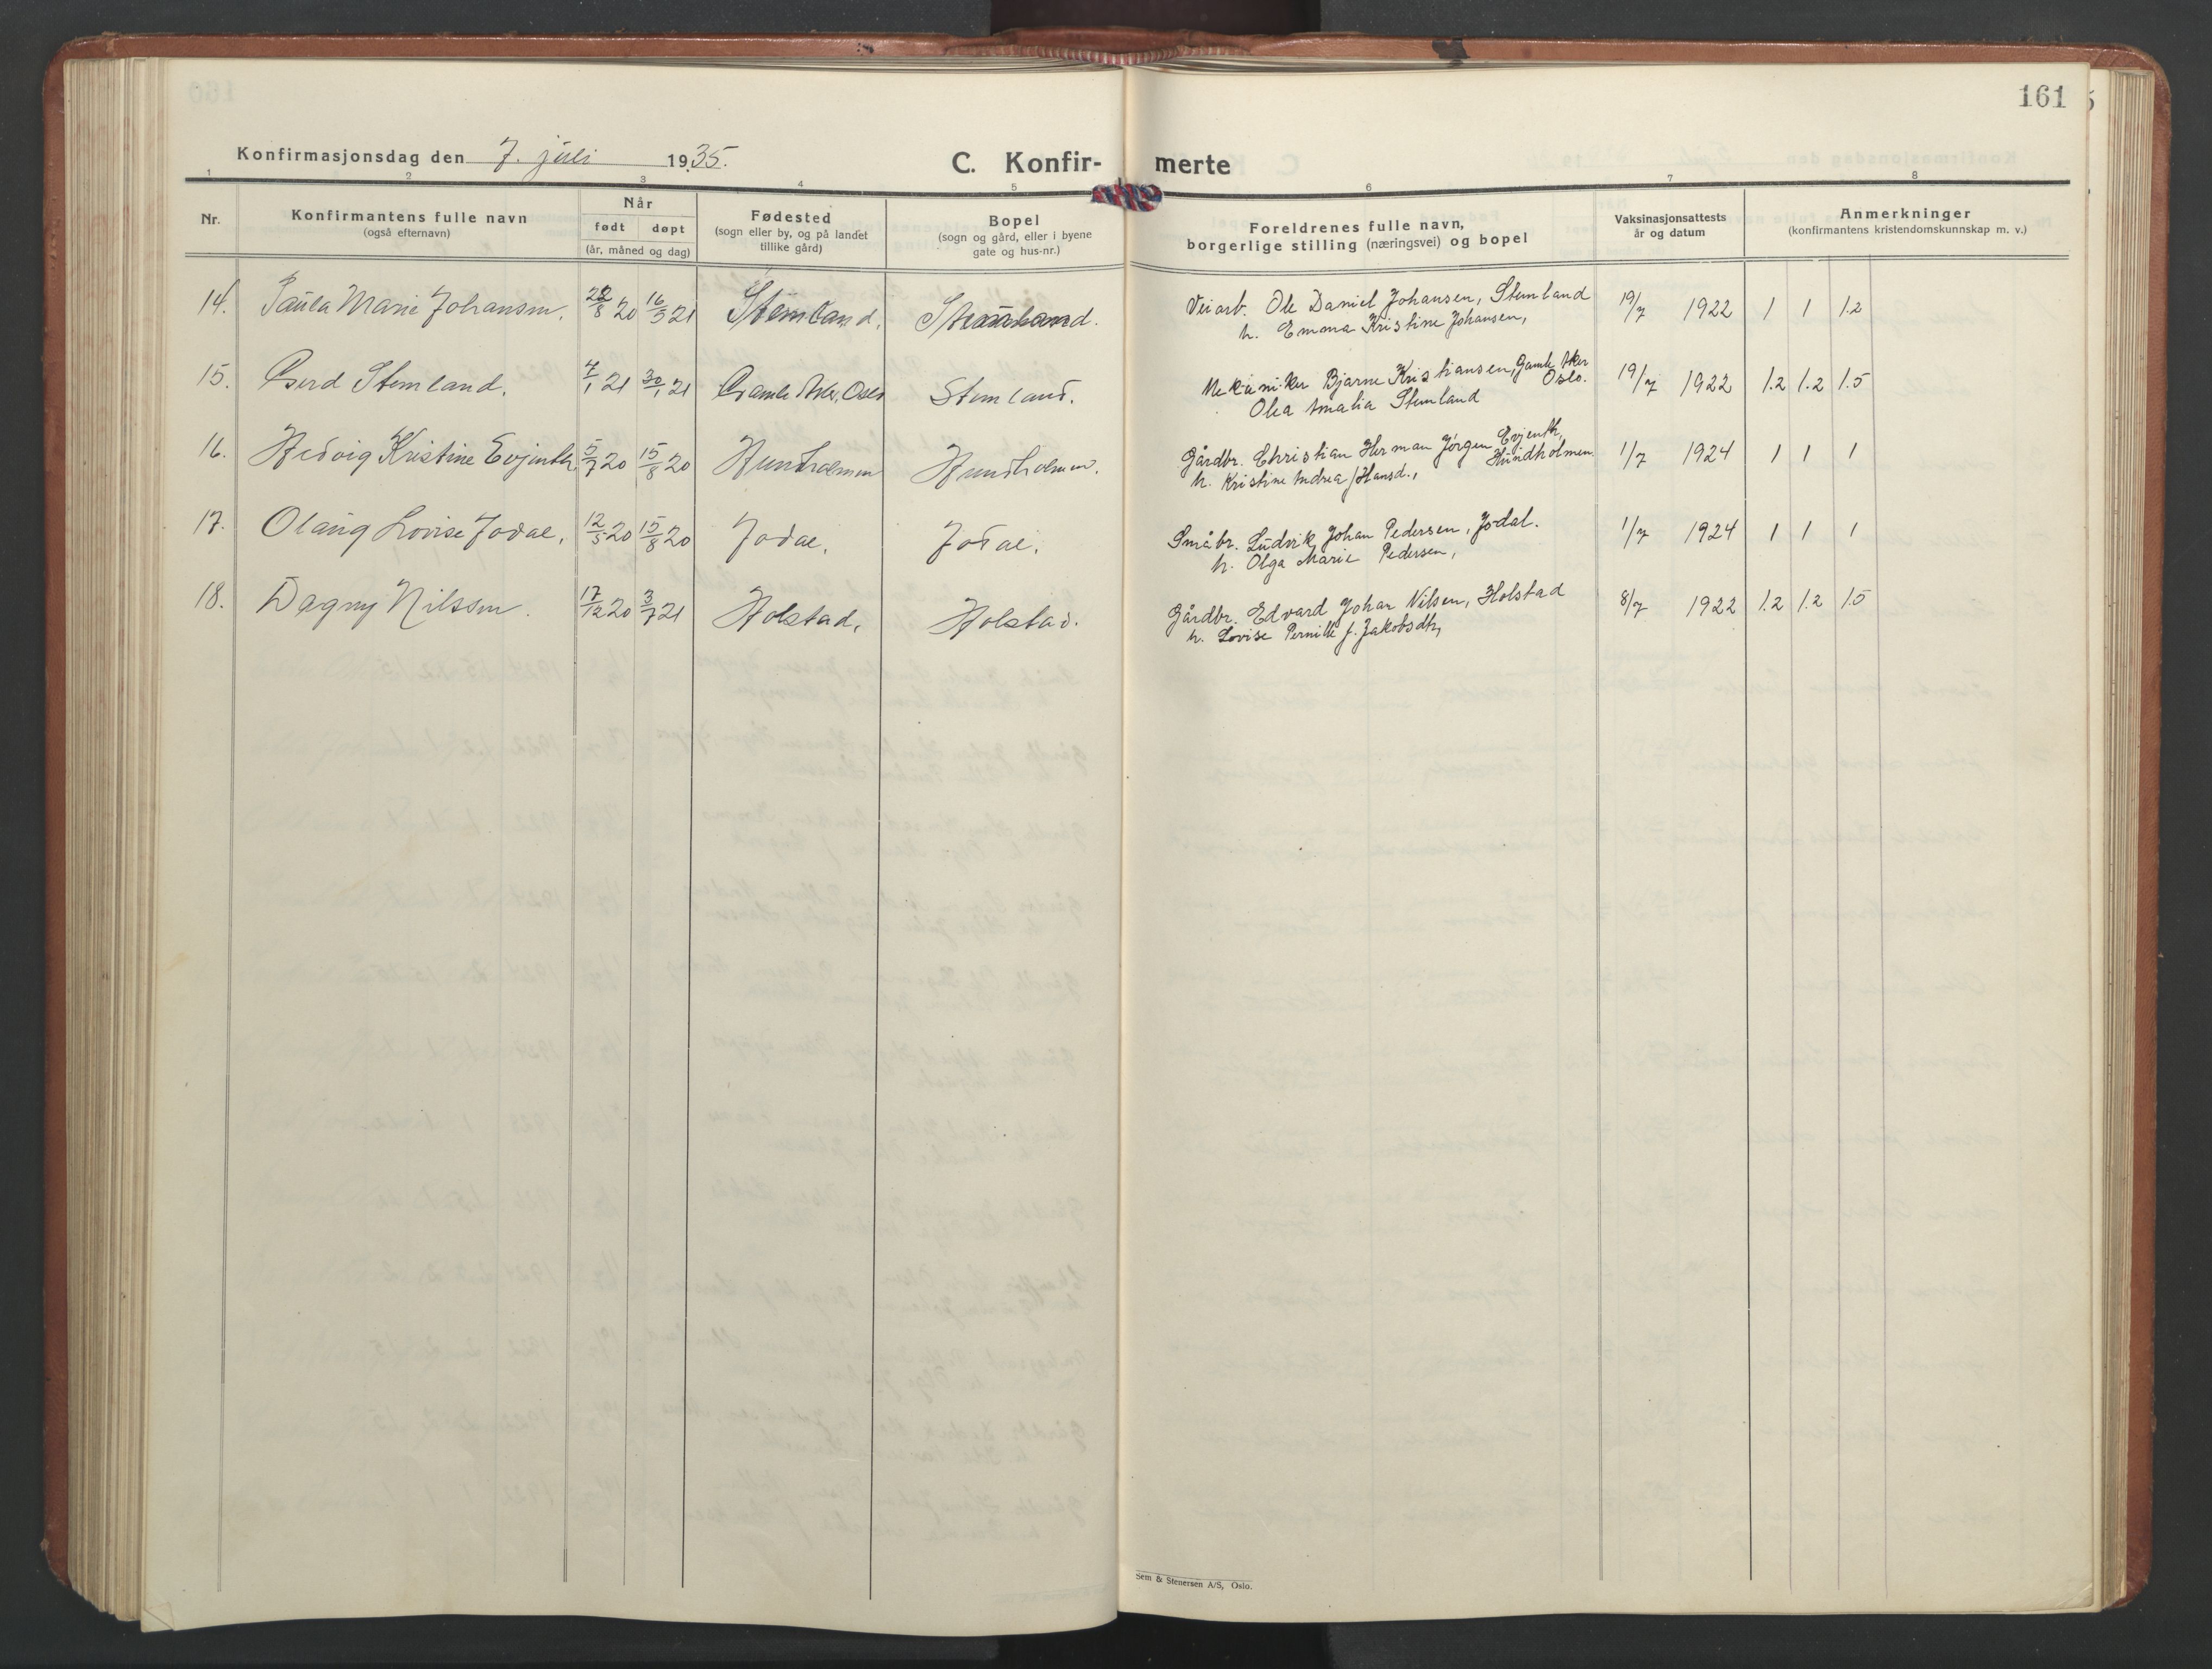 161
Konfirmasjonsdag den 7. juli 1935.
C. Konfir- merte
1 2 3 4 5 6 7 8
Nr.
Konfirmantens fulle navn
(også efternavn)
Når
født døpt
(år, måned og dag)
Fødested
(sogn eller by, og på landet
tillike gård)
Bopel
(sogn og gård, eller i byene
gate og hus-nr.)
Foreldrenes fulle navn,
borgerlige stilling (næringsvei) og bopel
Vaksinasjonsattests
år og datum
Anmerkninger
(konfirmantens kristendomskunnskap m. v.)
14. Paula Marie Johansen. 28/8 20 16/5 21 Stemland. Stemland. Veiarb. Ole Daniel Johansen, Stemland 19/7 1922 1 1 1.2
h. Emma Kristine Johansen,
15. Gerd Stemland. 7/1 21 30/1 21 Gamle Aker, Oslo Stemland. Mekaniker Bjarne Kristiansen, Gamle Aker 19/7 1922 1.2 1.2 1.5
Oslo.
Olea Amalia Stemland
16. Hedvig Kristine Evjenth 5/7 20 15/8 20 Hundholmen Hundholmen. Gårdbr. Christian Herman Jörgen Evjenth, 1/7 1924 1 1 1
Hundholmen.
h. Kristine Andrea f. Hansd.,
17. Olaug Lovise Jodal. 12/5 20 15/8 20 Jodal. Jodal. Småbr. Ludvik Johan Pedersen, Jodal. 1/7 1924 1 1 1
h. Olga Marie Pedersen,
18. Dagny Nilssen. 17/12 20 3/7 21 Holstad. Holstad. Gårdbr. Edvard Johan Nilsen, Holstad 8/7 1922 1.2 1.2 1.5
h. Lovise Pernille f. Jakobsdtr,
Sem & Stenersen A/S, Oslo.